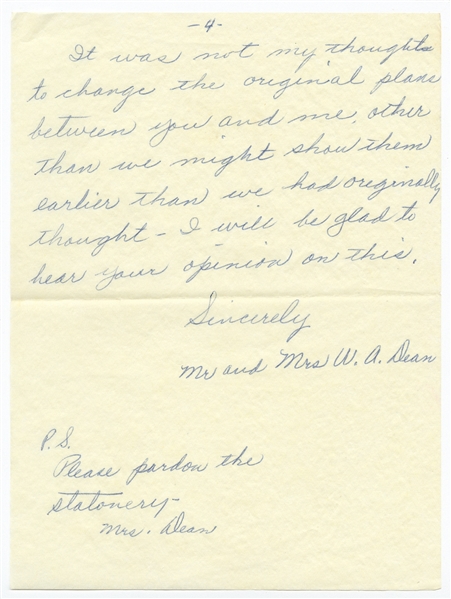 -4-
It was not my thoughts
to change the original plans
between you and me, other
than we might show them
earlier than we had originally
thought - I will be glad to
hear your opinion on this.
Sincerely
Mr and Mrs W. A. Dean
P.S.
Please pardon the
statonery-
Mrs. Dean